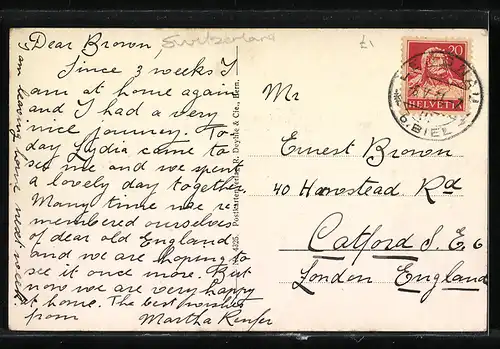 Dear Brown,
Switzerland
£1
Since 3 weeks I
am at home again
and I had a very
nice journey. To-
day Lydia came to
see me and we spent
a lovely day together.
Many time we re-
membered ourselves
of dear old England
and we are hoping to
see it once more. But
now we are very happy
at home. The best wishes
from Martha Renfer
I am leaving home next week
No. 4225. Postkartenverlag R. Deyhle & Cie., Bern.
20
HELVETIA
b. BIEL
Mr
Ernest Brown
40 Rd
Catford S.E. 6
London England